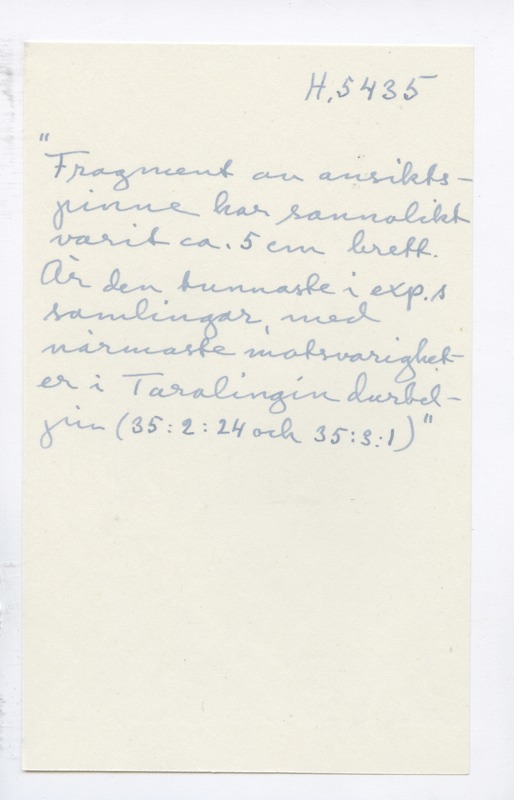 H.5435
"
Fragment av ansikts-
pinne har sannolikt
varit ca. 5 cm brett.
Är den tunnaste i exp.s
samlingar, med
närmaste motsvarighet-
er i Taralingin durbel-
jin (35:2:24 och 35:3:1)"